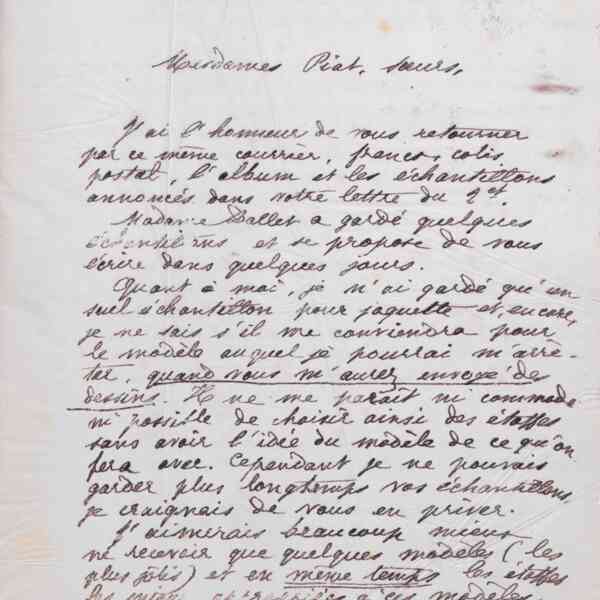 Mesdames Piat, sœurs,
J'ai l'honneur de vous retourner
par ce même courrier, franco, colis
postal, l'album et les échantillons
annoncés dans votre lettre du 2 ct.
Madame Ballet a gardé quelques
échantillons et se propose de vous
écrire dans quelques jours.
Quant à moi, je n'ai gardé qu'un
seul échantillon pour jaquette et, encore,
je ne sais s'il me conviendra pour
le modèle auquel je pourrai m'arrê-
ter, quand vous m'aurez envoyé des
dessins. Il ne me paraît ni commode
ni possible de choisir ainsi des étoffes
sans avoir l'idée du modèle de ce qu'on
fera avec. Cependant je ne pouvais
garder plus longtemps vos échantillons,
je craignais de vous en priver.
J'aimerais beaucoup mieux
ne recevoir que quelques modèles (les
plus jolis) et en même temps les étoffes
les mieux appropriées à ces modèles.